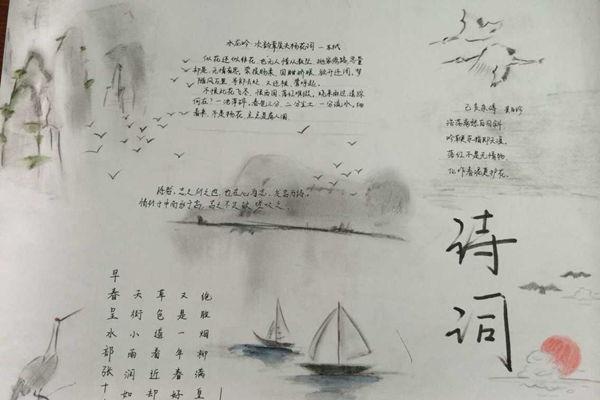 水龙吟·次韵章质夫杨花词 —苏轼
似花还似非花，也无人惜从教坠。抛家傍路，思量
却是，无情有思。萦损柔肠，困酣娇眼，欲开还闭。梦
随风万里，寻郎去处，又还被、莺呼起。
不恨此花飞尽，恨西园、落红难缀。晓来雨过，遗踪
何在？一池萍碎。春色三分，二分尘土，一分流水。细
看来，不是杨花，点点是离人泪。
己亥杂诗 龚自珍
浩荡离愁白日斜，
吟鞭东指即天涯。
落红不是无情物，
化作春泥更护花。
诗者，志之所之也，在心为志，发言为诗。
情动于中而形于言，言之不足故嗟叹之。
诗词
早春呈水部张十
天街小雨润如
草色遥看近却
又是一年春好
绝胜烟柳满